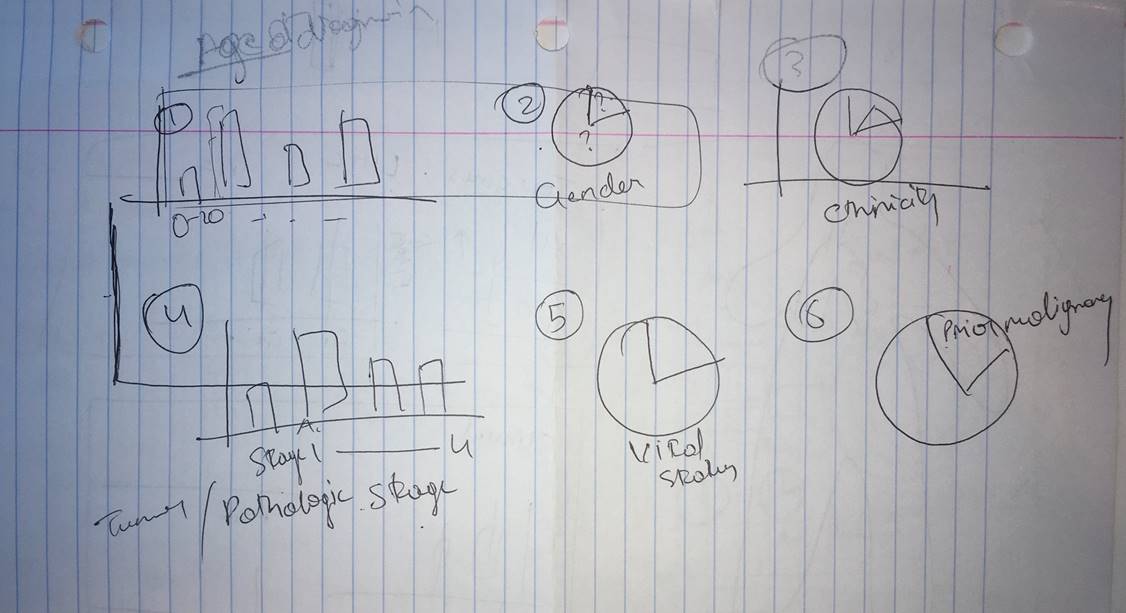 Age of diagnosis
1
2
?
?
Gender
3
Ethinicity
0-20 - - -
4
Stage 1 ——— 4
Tumor / Pathologic Stage
5
Vital
Status
6
Prior malignancy